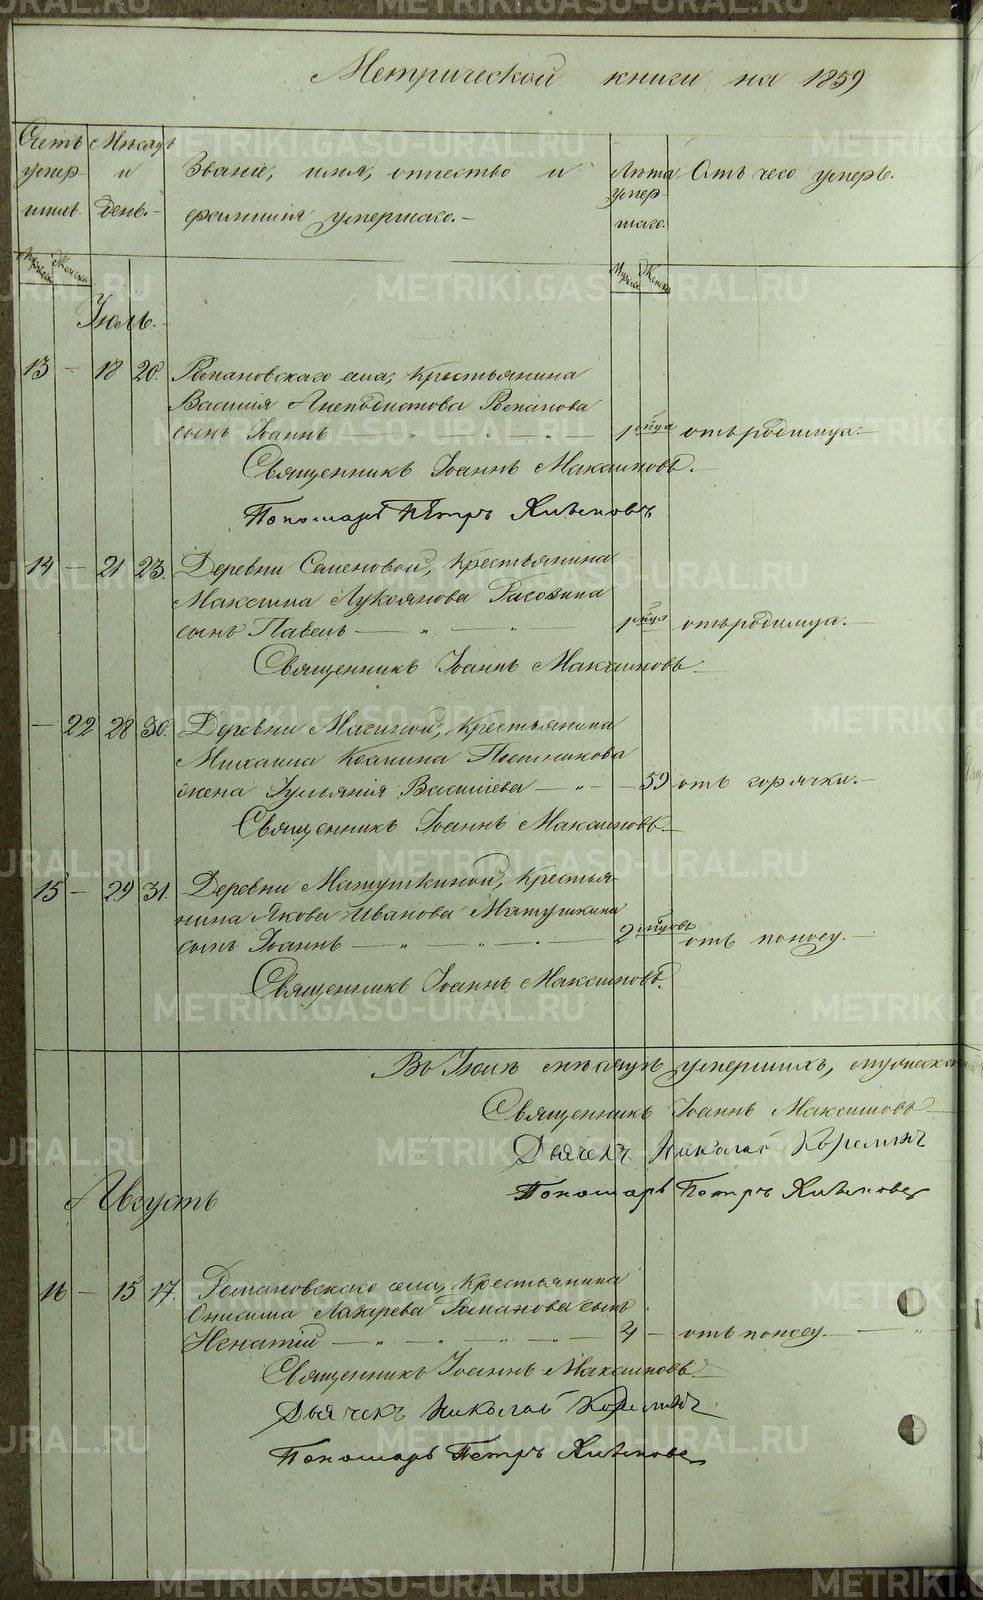 Метрической книги на 1859
Счетъ умершихъ
Мѣсяцъ и день.
Званіе, имя, отчество и фамилія умершаго.
Лѣта умершаго.
Отъ чего умеръ.
Мужска Женска
Мужска Женска
Іюль.
13 — 18 20. Романовскаго села, Крестьянина
Василія Анеподистова Романова
сынъ Іоаннъ — „ — „ — „ — 1 отъ родимца. —
Священникъ Іоаннъ Максимовъ. —
Пономарь Петръ
14 — 21 23. Деревни Семеновой, Крестьянина
Максима Лукоянова
сынъ Павелъ — „ — „ — 1 отъ родимца. —
Священникъ Іоаннъ Максимовъ —
— 22 28 30. Деревни Крестьянина
Михаила
жена Іульянія Васильева — „ — 59 отъ горячки. —
Священникъ Іоаннъ Максимовъ. —
15 — 29 31. Деревни Матушкиной, Крестья-
нина Якова Иванова Матушкина
сынъ Іоаннъ — „ — „ — „ — 2 отъ поносу. —
Священникъ Іоаннъ Максимовъ.
Въ Іюлѣ мѣсяцѣ умершихъ, мужеска
Священникъ Іоаннъ Максимовъ —
Дьячекъ Николай
Пономарь Петръ
Августъ
16 — 15 17. Романовскаго села, Крестьянина
Онисима Лазарева Романова сынъ
Игнатій — „ — „ — „ — „ — 4 — отъ поносу. — „
Священникъ Іоаннъ Максимовъ. —
Дьячекъ Николай
Пономарь Петръ
METRIKI.GASO-URAL.RU